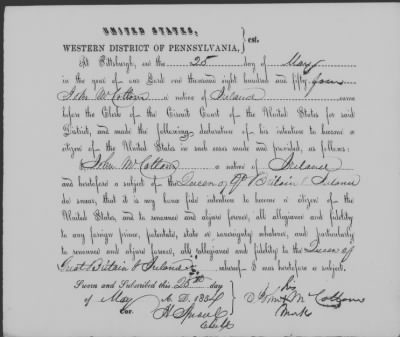 UNITED STATES,
WESTERN DISTRICT OF PENNSYLVANIA, } sst.
At Pittsburgh, on the 25 day of May
in the year of our Lord one thousand eight hundred and fifty four
John McCottom a native of Ireland came
before the Clerk of the Circuit Court of the United States for said
District, and made the following declaration of his intention to become a
citizen of the United States in such cases made and provided, as follows:
I John McCottom a native of Ireland
and heretofore a subject of the Queen of Gt Britain & Ireland
do swear, that it is my bona fide intention to become a citizen of the
United States, and to renounce and abjure forever, all allegiance and fidelity
to any foreign prince, potentate, state or sovereignty whatever, and particularly
to renounce and abjure forever, all allegiance and fidelity to the Queen of
Great Britain & Ireland whereof I was heretofore a subject.
Sworn and Subscribed this 25th day
of May A. D. 1854
cor. H Sproul
Clerk
his
John X McCottom
Mark